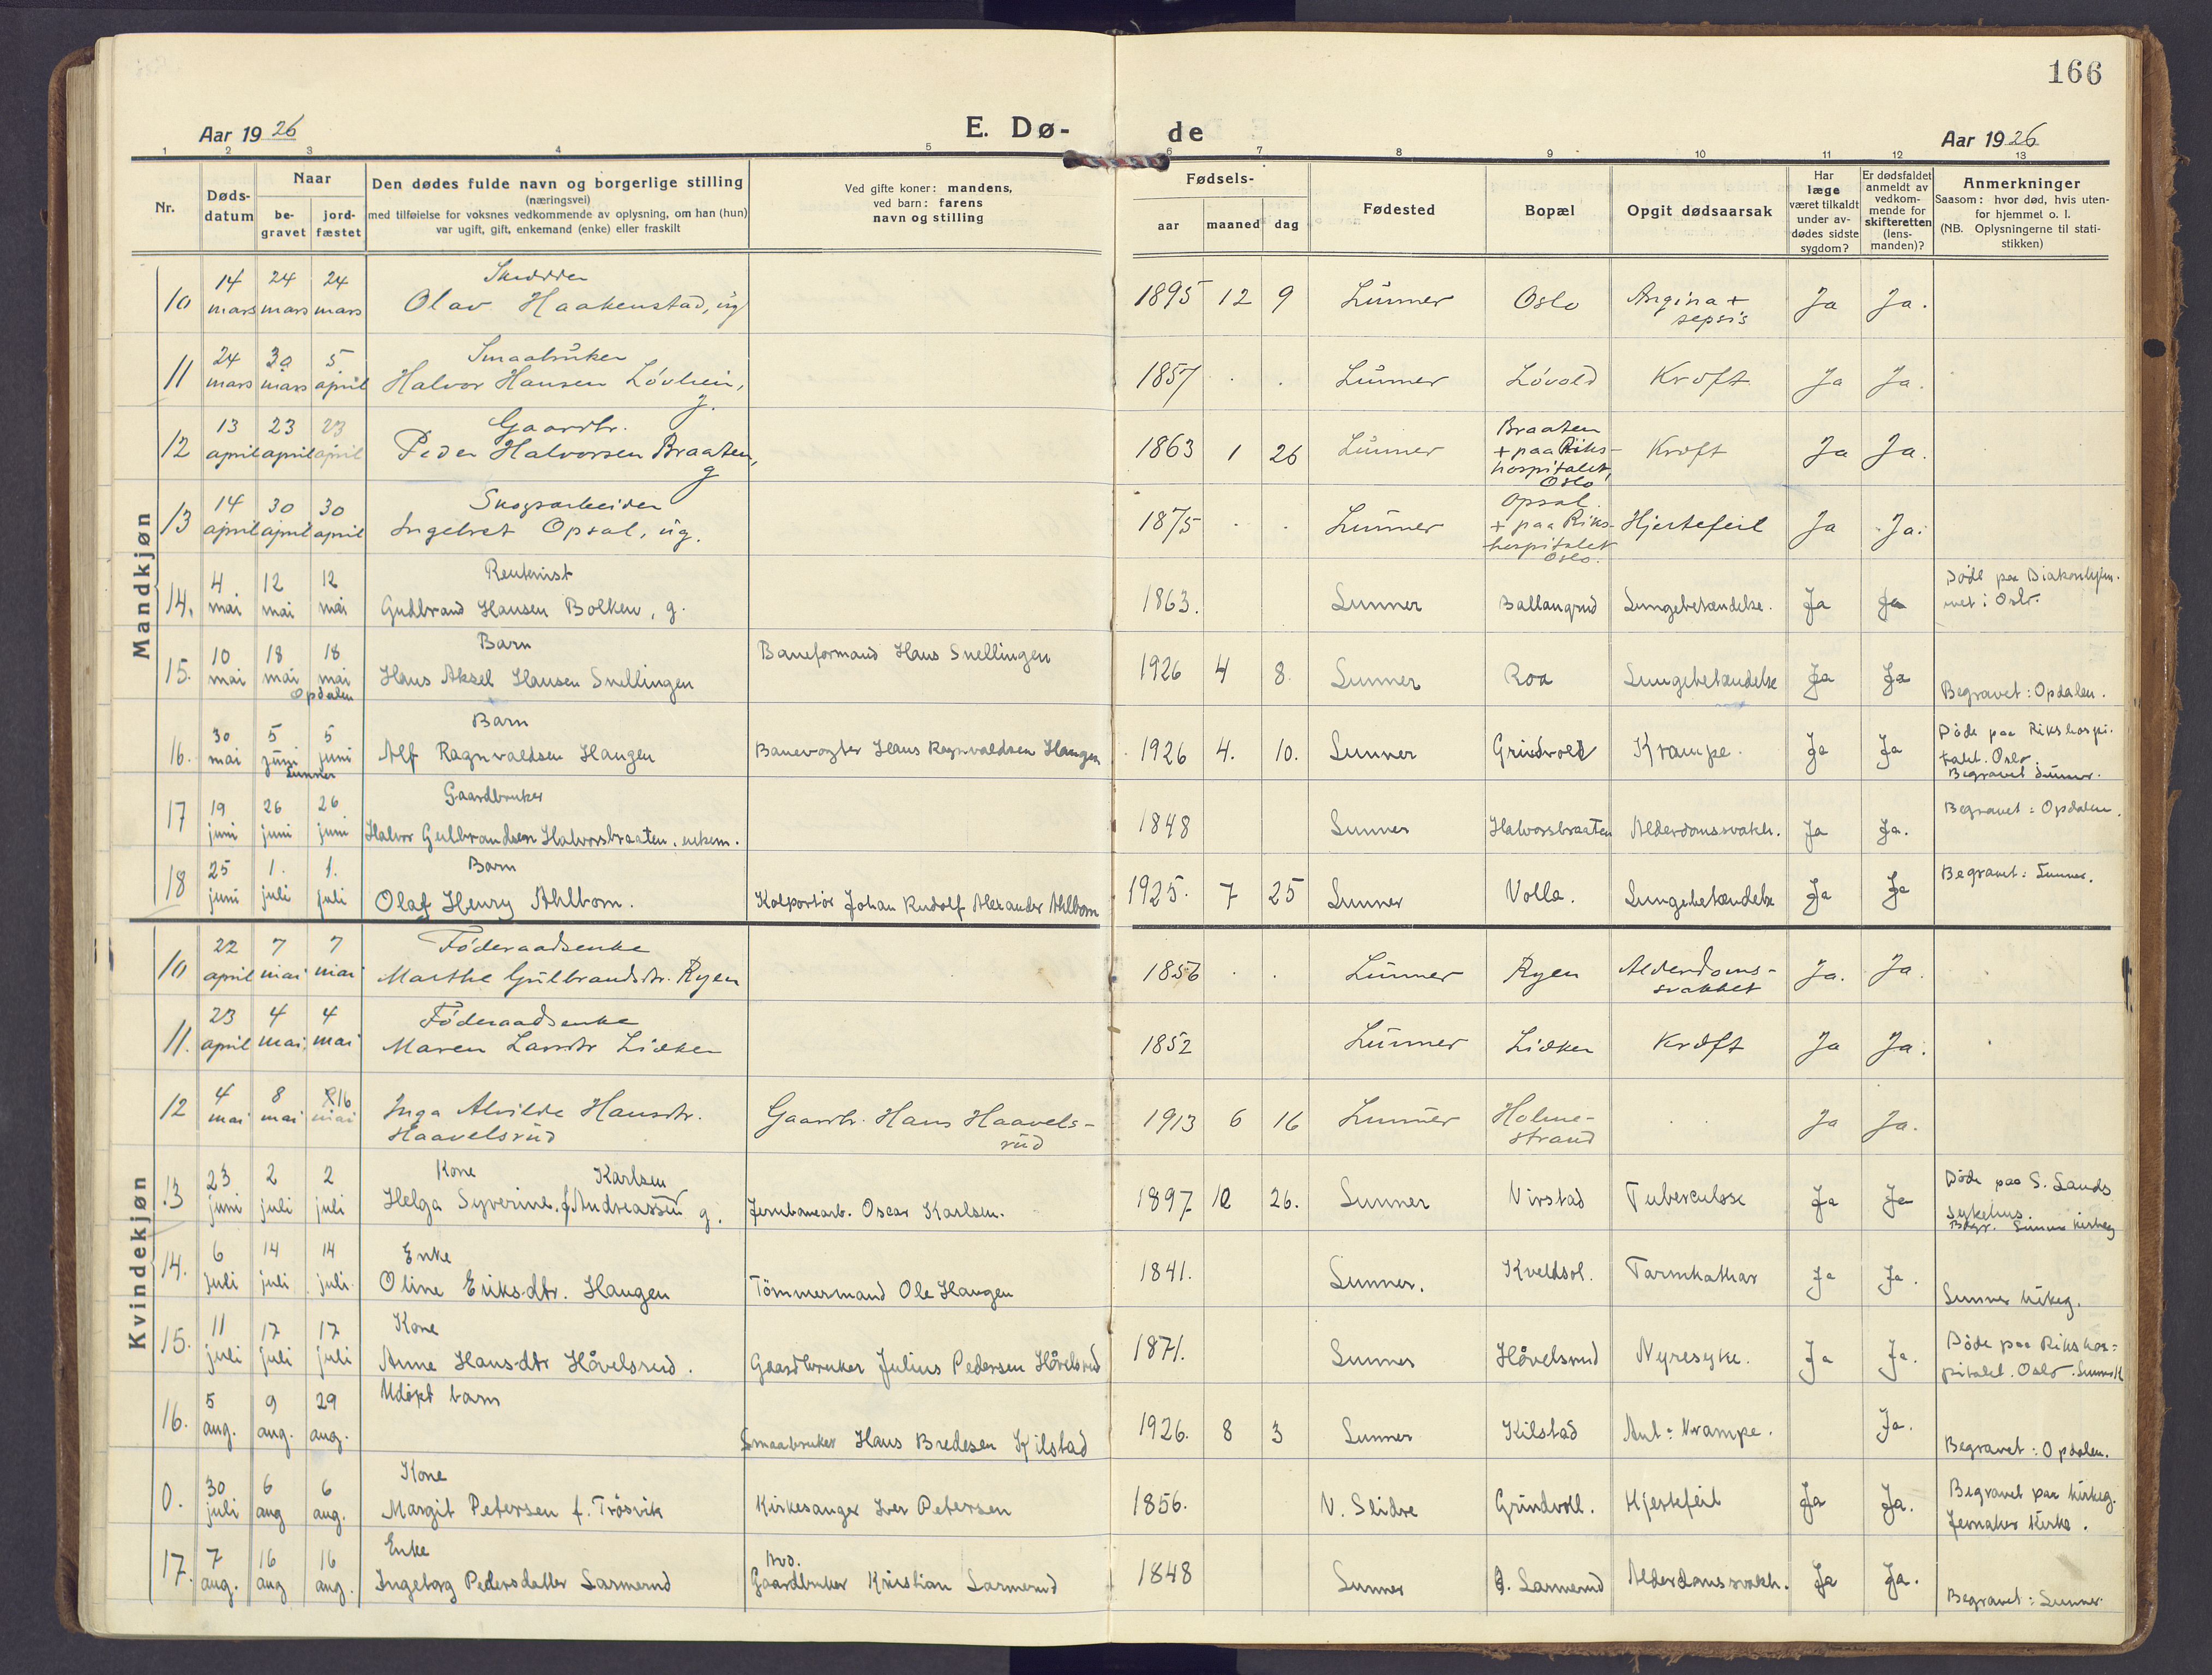 166
Aar 1926
E. Dø-
de
Aar 1926
1 2 3 4 5 6 7 8 9 10 11 12 13
Nr.
Døds-
datum
Naar
be-
gravet
jord-
fæstet
Den dødes fulde navn og borgerlige stilling
(næringsvei)
med tilføielse for voksnes vedkommende av oplysning, om han (hun)
var ugift, gift, enkemand (enke) eller fraskilt
Ved gifte koner: mandens,
ved barn: farens
navn og stilling
Fødsels-
aar maaned dag
Fødested
Bopæl
Opgit dødsaarsak
Har
læge
været tilkaldt
under av-
dødes sidste
sygdom?
Er dødsfaldet
anmeldt av
vedkom-
mende for
skifteretten
(lens-
manden)?
Anmerkninger
Saasom: hvor død, hvis uten-
for hjemmet o. l.
(NB. Oplysningerne til stati-
stikken)
Mandkjøn
10 14 mars 24 mars 24 mars
Olav Haakenstad, ug
1895 12 9 Lunner Oslo Angina + sepsis Ja Ja.
11 24 mars 30 mars 5 april Smaabruker
Halvor Hansen Løvhein, g.
1857 . . Lunner Løvold Kræft Ja Ja.
12 13 april 23 april 23 april Gaardbr.
Peder Halvorsen Braaten, g
1863 1 26 Lunner Braaten + paa Riks-
hospitalet, Oslo Kræft Ja Ja.
13 14 april 30 april 30 april Skogsarbeider
Ingebret Opsal, ug.
1875 . . Lunner Opsal. + paa Riks-
hospitalet Oslo. Hjertefeil Ja Ja.
14. 4 mai 12 mai 12 mai
Gudbrand Hansen Bolken, g.
1863. Lunner Ballangrud Lungebetændelse. Ja Ja Døde paa Diakonhjem-
met i Oslo.
15. 10 mai 18 mai 18 mai Opdalen Barn
Hans Aksel Hansen Snellingen
Baneformand Hans Snellingen
1926 4 8. Lunner Roa Lungebetændelse Ja Ja Begravet: Opdalen.
16. 30 mai 5 juni 5 juni Lunner Barn
Alf Ragnvaldsen Haugen
Banevogter Hans Ragnvaldsen Haugen
1926 4. 10. Lunner Grindvold Krampe. Ja Ja Døde paa Rikshospi-
talet. Oslo.
Begravet Lunner.
17 19 juni 26 juni 26 juni Gaardbruker
Halvor Gulbrandsen Halvorsbraaten, enkem.
1848 Lunner Halvorsbraaten Alderdomssvakh. Ja Ja. Begravet: Opdalen.
18 25 juni 1. juli 1. juli Barn
Olaf Henry Ahlbom.
Kolportör Johan Rudolf Alexander Ahlbom
1925. 7 25 Lunner Volla. Lungebetændelse Ja Ja Begravet: Lunner.
Kvindekjøn
10 22 april 7 mai 7 mai Føderaadsenke
Marthe Gulbrandsdtr. Ryen
1856 . . Lunner Ryen Alderdoms-
svakhet Ja. Ja
11. 23 april 4 mai 4 mai Føderaadsenke
Maren Larsdtr Lidken
1852 Lunner Lidken Kræft Ja Ja.
12 4 mai 8 mai 16 mai
Inga Alvilde Hansdtr.
Haavelsrud
Gaardbr. Hans Haavels-
rud
1913 6 16 Lunner Holme-
strand Ja Ja.
13 23 juni 2 juli 2 juli Kone Karlsen
Helga Syverine f. Andreassen g.
Jernbanearb. Oscar Karlsen.
1897 26. Lunner Virstad Tuberculose Ja Ja Døde paa S. Lands
Sykehus.
Begr. Lunner kirkeg
14. 6 juli 14 juli 14 juli. Enke
Oline Eriks-dtr. Haugen
Tömmermand Ole Haugen
1841. Lunner. Kveldsol. Tarmkathar Ja Ja. Lunner kirkeg.
15. 11 juli 17 juli 17 juli Kone
Anne Hans-dtr Håvelsrud.
Gaardbruker Julius Pedersen Håvelsrud
1871. Lunner Håvelsrud Nyresyke. Ja Ja. Døde paa Rikshos-
pitalet. Oslo. Lunner K
16. 5 aug. 9 aug. 29 aug. Udöpt barn
Smaabruker Hans Bredesen Kilstad
1926. 8 3 Lunner Kilstad Ant: Krampe. Ja. Begravet: Opdalen.
0. 30 juli 6 aug 6 aug. Kone
Margit Petersen f. Trösvik
Kirkesanger Iver Petersen
1856. V. Slidre Grindvoll. Hjertefeil Ja Ja. Begravet paa kirkeg.
Jevnaker Kirke.
17. 7 aug. 16 aug 16 aug. Enke
Ingeborg Pedersdatter Sarmerud
Gaardbruker Kristian Sarmerud
1848 Lunner Sarmerud Alderdomssvakh. Ja Ja. Begravet: Lunner